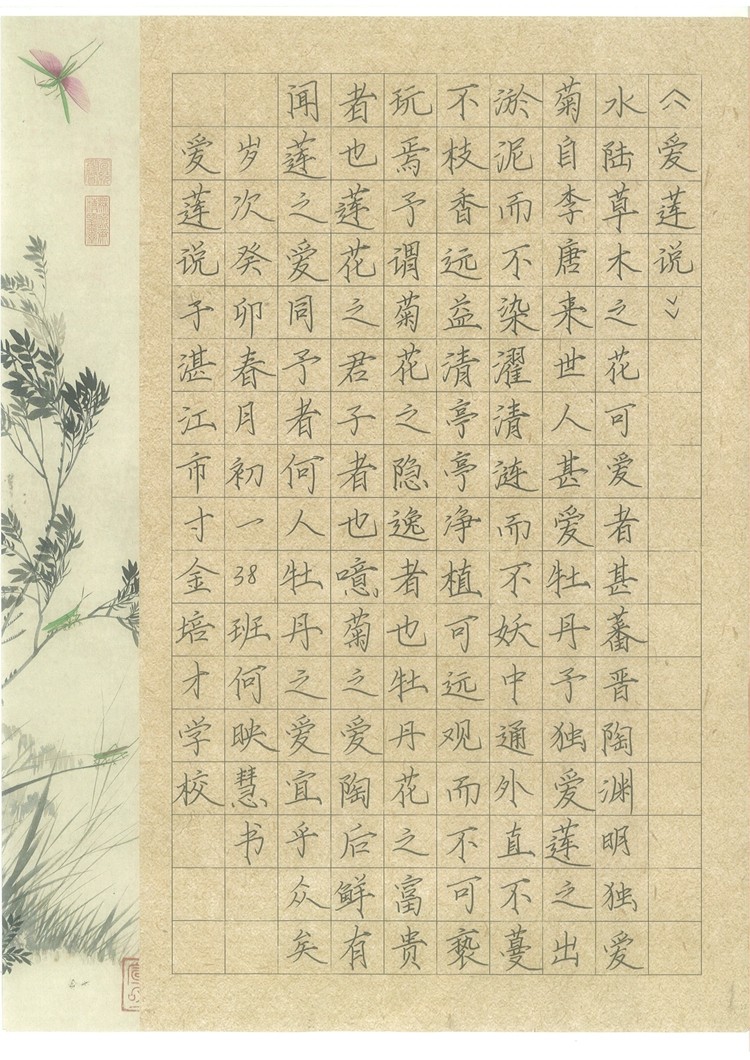 《爱莲说》
水陆草木之花可爱者甚蕃晋陶渊明独爱
菊自李唐来世人甚爱牡丹予独爱莲之出
淤泥而不染濯清涟而不妖中通外直不蔓
不枝香远益清亭亭净植可远观而不可亵
玩焉予谓菊花之隐逸者也牡丹花之富贵
者也莲花之君子者也噫菊之爱陶后鲜有
闻莲之爱同予者何人牡丹之爱宜乎众矣
岁次癸卯春月初一38班何映慧书
爱莲说于湛江市寸金培才学校